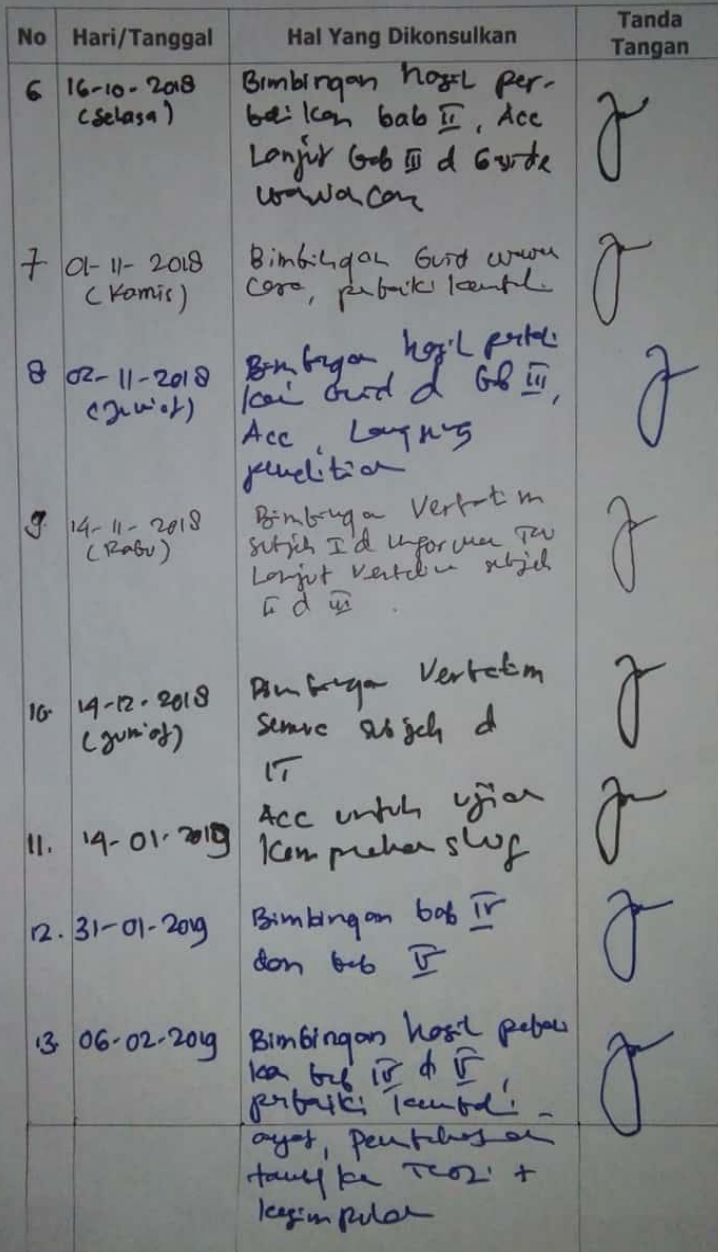 No Hari/Tanggal Hal Yang Dikonsulkan Tanda Tangan
6 16-10-2018 Bimbingan hasil per-
(Selasa) baikan bab II, Acc
Lanjut bab III d Guide
wawancara
7 01-11-2018 Bimbingan Guid wawan
(Kamis) cara, perbaiki kembali
8 02-11-2018 Bimbingan hasil perbai
(Jum'at) kan Guid d bab III,
Acc, Langsung
penelitian
9. 14-11-2018 Bimbingan Verbatim
(Rabu) subjek I d
Lanjut Verbatim subjek
II d III.
10. 14-12-2018 Bimbingan Verbatim
(Jum'at) semua subjek d
IT
11. 14-01-2019 Acc untuk ujian
Komprehensif
12. 31-01-2019 Bimbingan bab IV
dan bab V
13. 06-02-2019 Bimbingan hasil perbai
kan bab IV d V,
perbaiki kembali
ayat, pembahasan
ke Teori +
kesimpulan